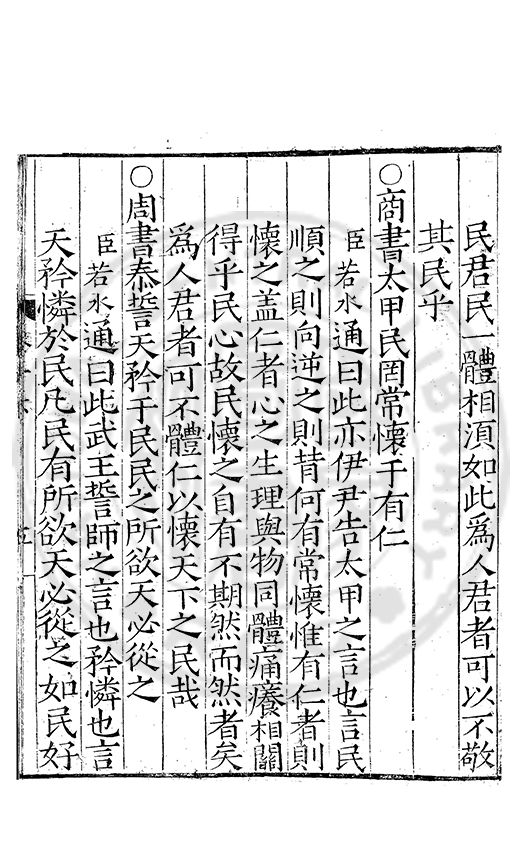 民君民一體相須如此爲人君者可以不敬
其民乎
○商書太甲民罔常懷于有仁
臣若水通曰此亦伊尹告太甲之言也言民
順之則向逆之則背何有常懷惟有仁者則
懷之盖仁者心之生理與物同體痛癢相關
得乎民心故民懷之自有不期然而然者矣
爲人君者可不體仁以懷天下之民哉
○周書泰誓天矜于民民之所欲天必從之
臣若水通曰此武王誓師之言也矜憐也言
天矜憐於民凡民有所欲天必從之如民好